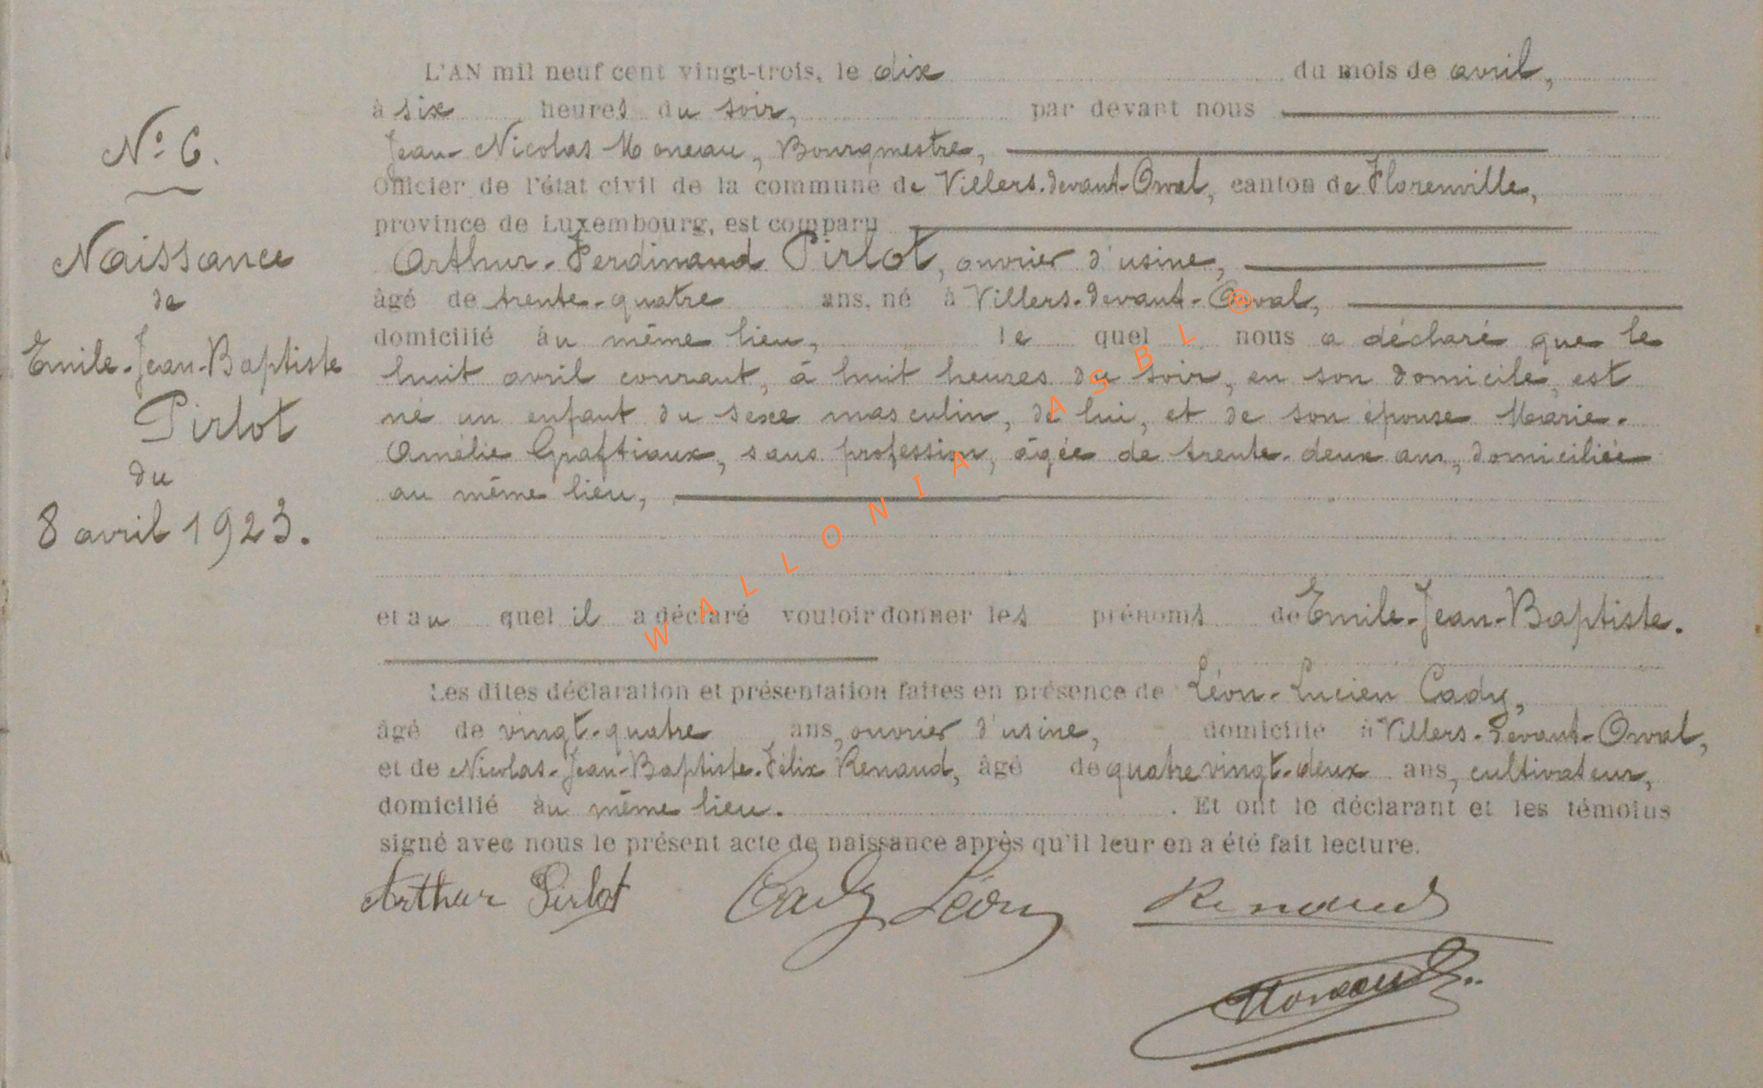 N° 6.
Naissance
de
Emile-Jean-Baptiste
Pirlot
du
8 avril 1923.
L'AN mil neuf cent vingt-trois, le dix du mois de avril,
à six heures du soir, par devant nous
Jean-Nicolas Moneau, Bourgmestre,
Officier de l'état civil de la commune de Villers-devant-Orval, canton de Florenville,
province de Luxembourg, est comparu
Arthur-Ferdinand Pirlot, ouvrier d'usine,
âgé de trente-quatre ans, né à Villers-devant-Orval,
domicilié au même lieu, le quel nous a déclaré que le
huit avril courant, à huit heures du soir, en son domicile, est
né un enfant du sexe masculin, de lui, et de son épouse Marie-
Amélie Graftiaux, sans profession, âgée de trente-deux ans, domiciliée
au même lieu,
et au quel il a déclaré vouloir donner les prénoms de Emile-Jean-Baptiste.
Les dites déclaration et présentation faites en présence de Léon-Lucien Cady,
âgé de vingt-quatre ans, ouvrier d'usine, domicilié à Villers-devant-Orval,
et de Nicolas-Jean-Baptiste-Félix Renaud, âgé de quatre vingt-deux ans, cultivateur,
domicilié au même lieu. Et ont le déclarant et les témoins
signé avec nous le présent acte de naissance après qu'il leur en a été fait lecture.
Arthur Pirlot Cady Léon Renaud
Moneau
WALLONIA ASBL ©